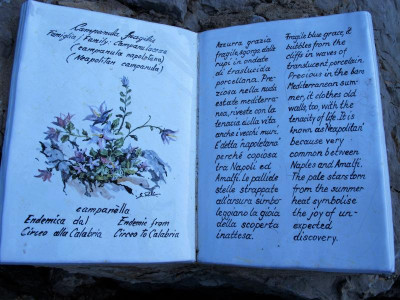 Campanula fragilis
Famiglia/Family: Campanulaceae
(campanula napoletana)
(Neapolitan campanula)
campanèlla
Endemica dal
Circeo alla Calabria
Endemic from
Circeo to Calabria
Azzurra grazia
fragile, sgorga dalle
rupi in ondate
di traslucida
porcellana. Pre-
ziosa nella nuda
estate mediterra-
nea, riveste con la
tenacia sulla vita
anche i vecchi muri.
È detta "napoletana"
perchè copiosa
tra Napoli ed
Amalfi. Le pallide
stelle strappate
all'arsura simbo-
leggiano la gioia
della scoperta
inattesa.
Fragile blue grace, it
bubbles from the
cliffs in waves of
translucent porcelain.
Precious in the bare
Mediterranean sum-
mer, it clothes old
walls, too, with the
tenacity of life. It is
known as Neapolitan'
because very
common between
Naples and Amalfi.
The pale stars torn
from the summer
heat symbolise
the joy of un-
expected
discovery.